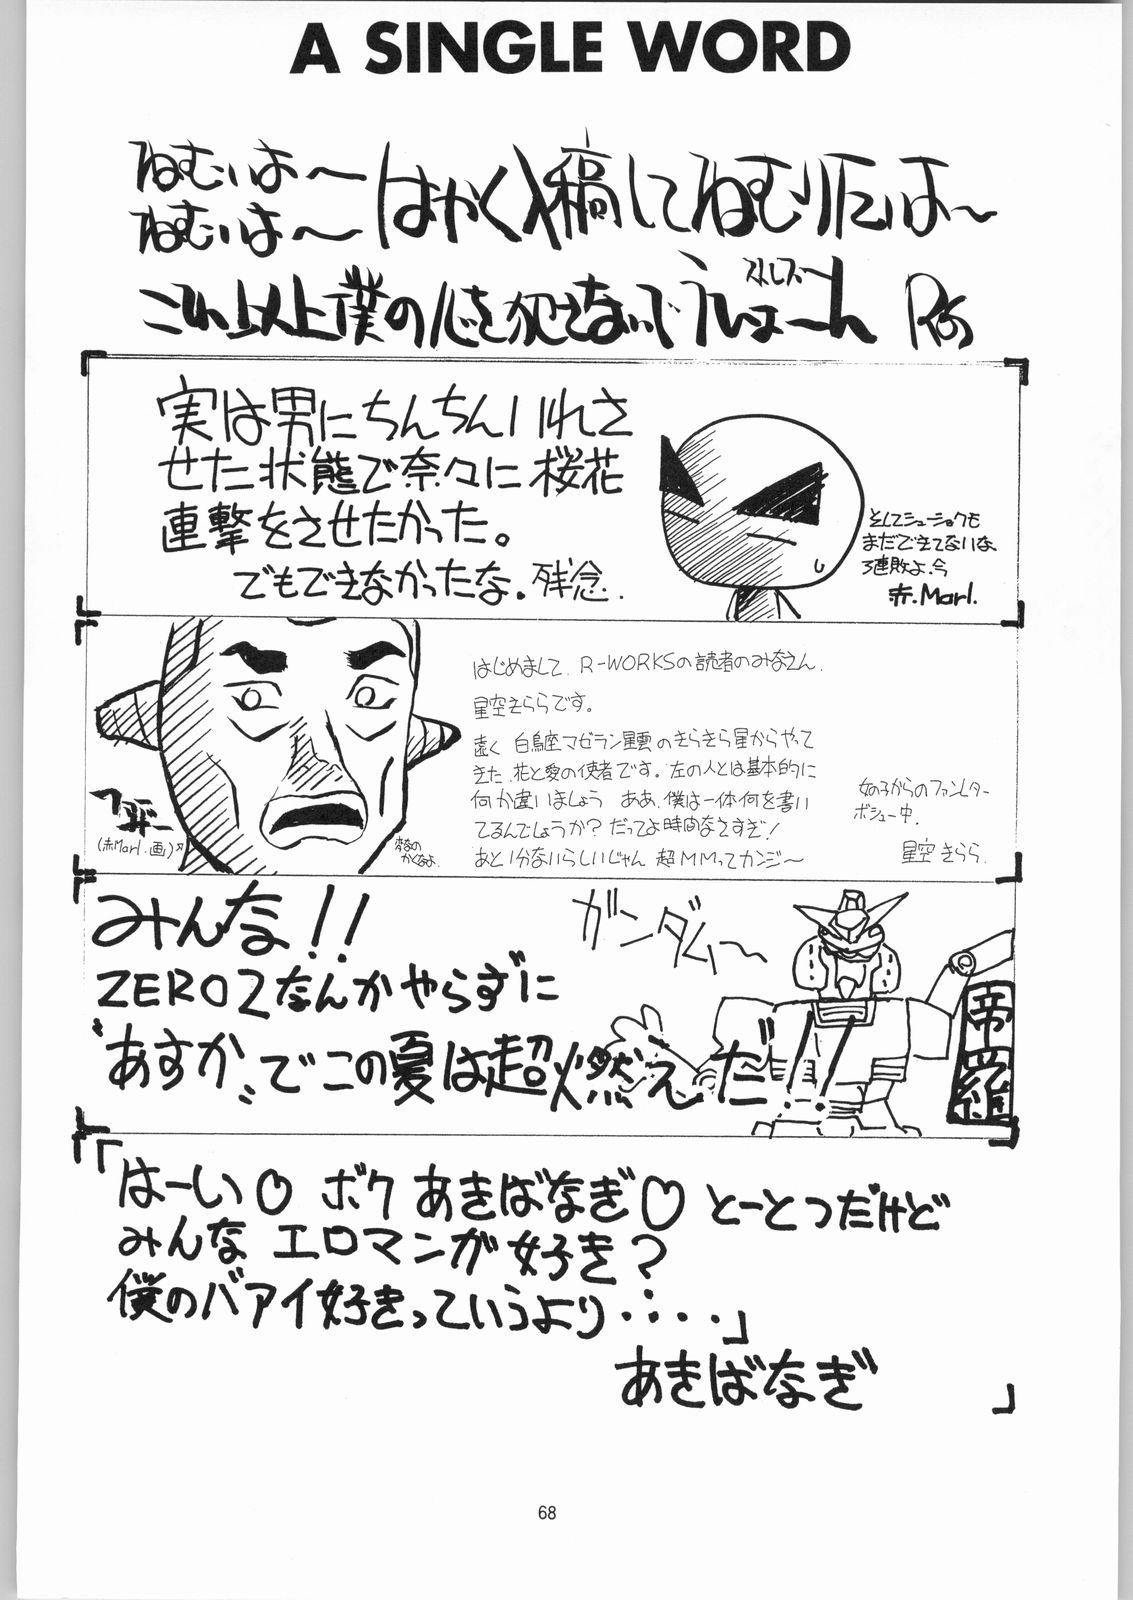 A SINGLE WORD
ねむいよ〜
ねむいよ〜
はやく入稿してねむりたいよ〜
これ以上僕の心を犯さないで
実は男にちんちんいれさ
せた状態で奈々に桜花
連撃をさせたかった。
でもできなかったな。残念.
そしてシューショクも
まだできてないな、
3連敗よ.今
赤.Marl.
はじめまして R-WORKSの読者のみなさん.
星空きららです。
遠く 白鳥座マゼラン星雲のきらきら星からやって
きた 花と愛の使者です。左の人とは基本的に
何か違いましょう ああ、僕は一体何を書い
てるんでしょうか？だってよ時間なさすぎ！
あと1分ないらしいじゃん 超MMってカンジ〜
女の子からのファンレター
ボシュー中.
星空 きらら.
(赤Marl.画)
みんな!!
ZERO2なんかやらずに
"あすか"でこの夏は超燃えだ!!
ガンダム〜
帝羅
「はーい♡ ボク あきばなぎ♡ とーとつだけど
みんな エロマンガ好き？
僕のバアイ好きっていうより・・・・」
あきばなぎ
68